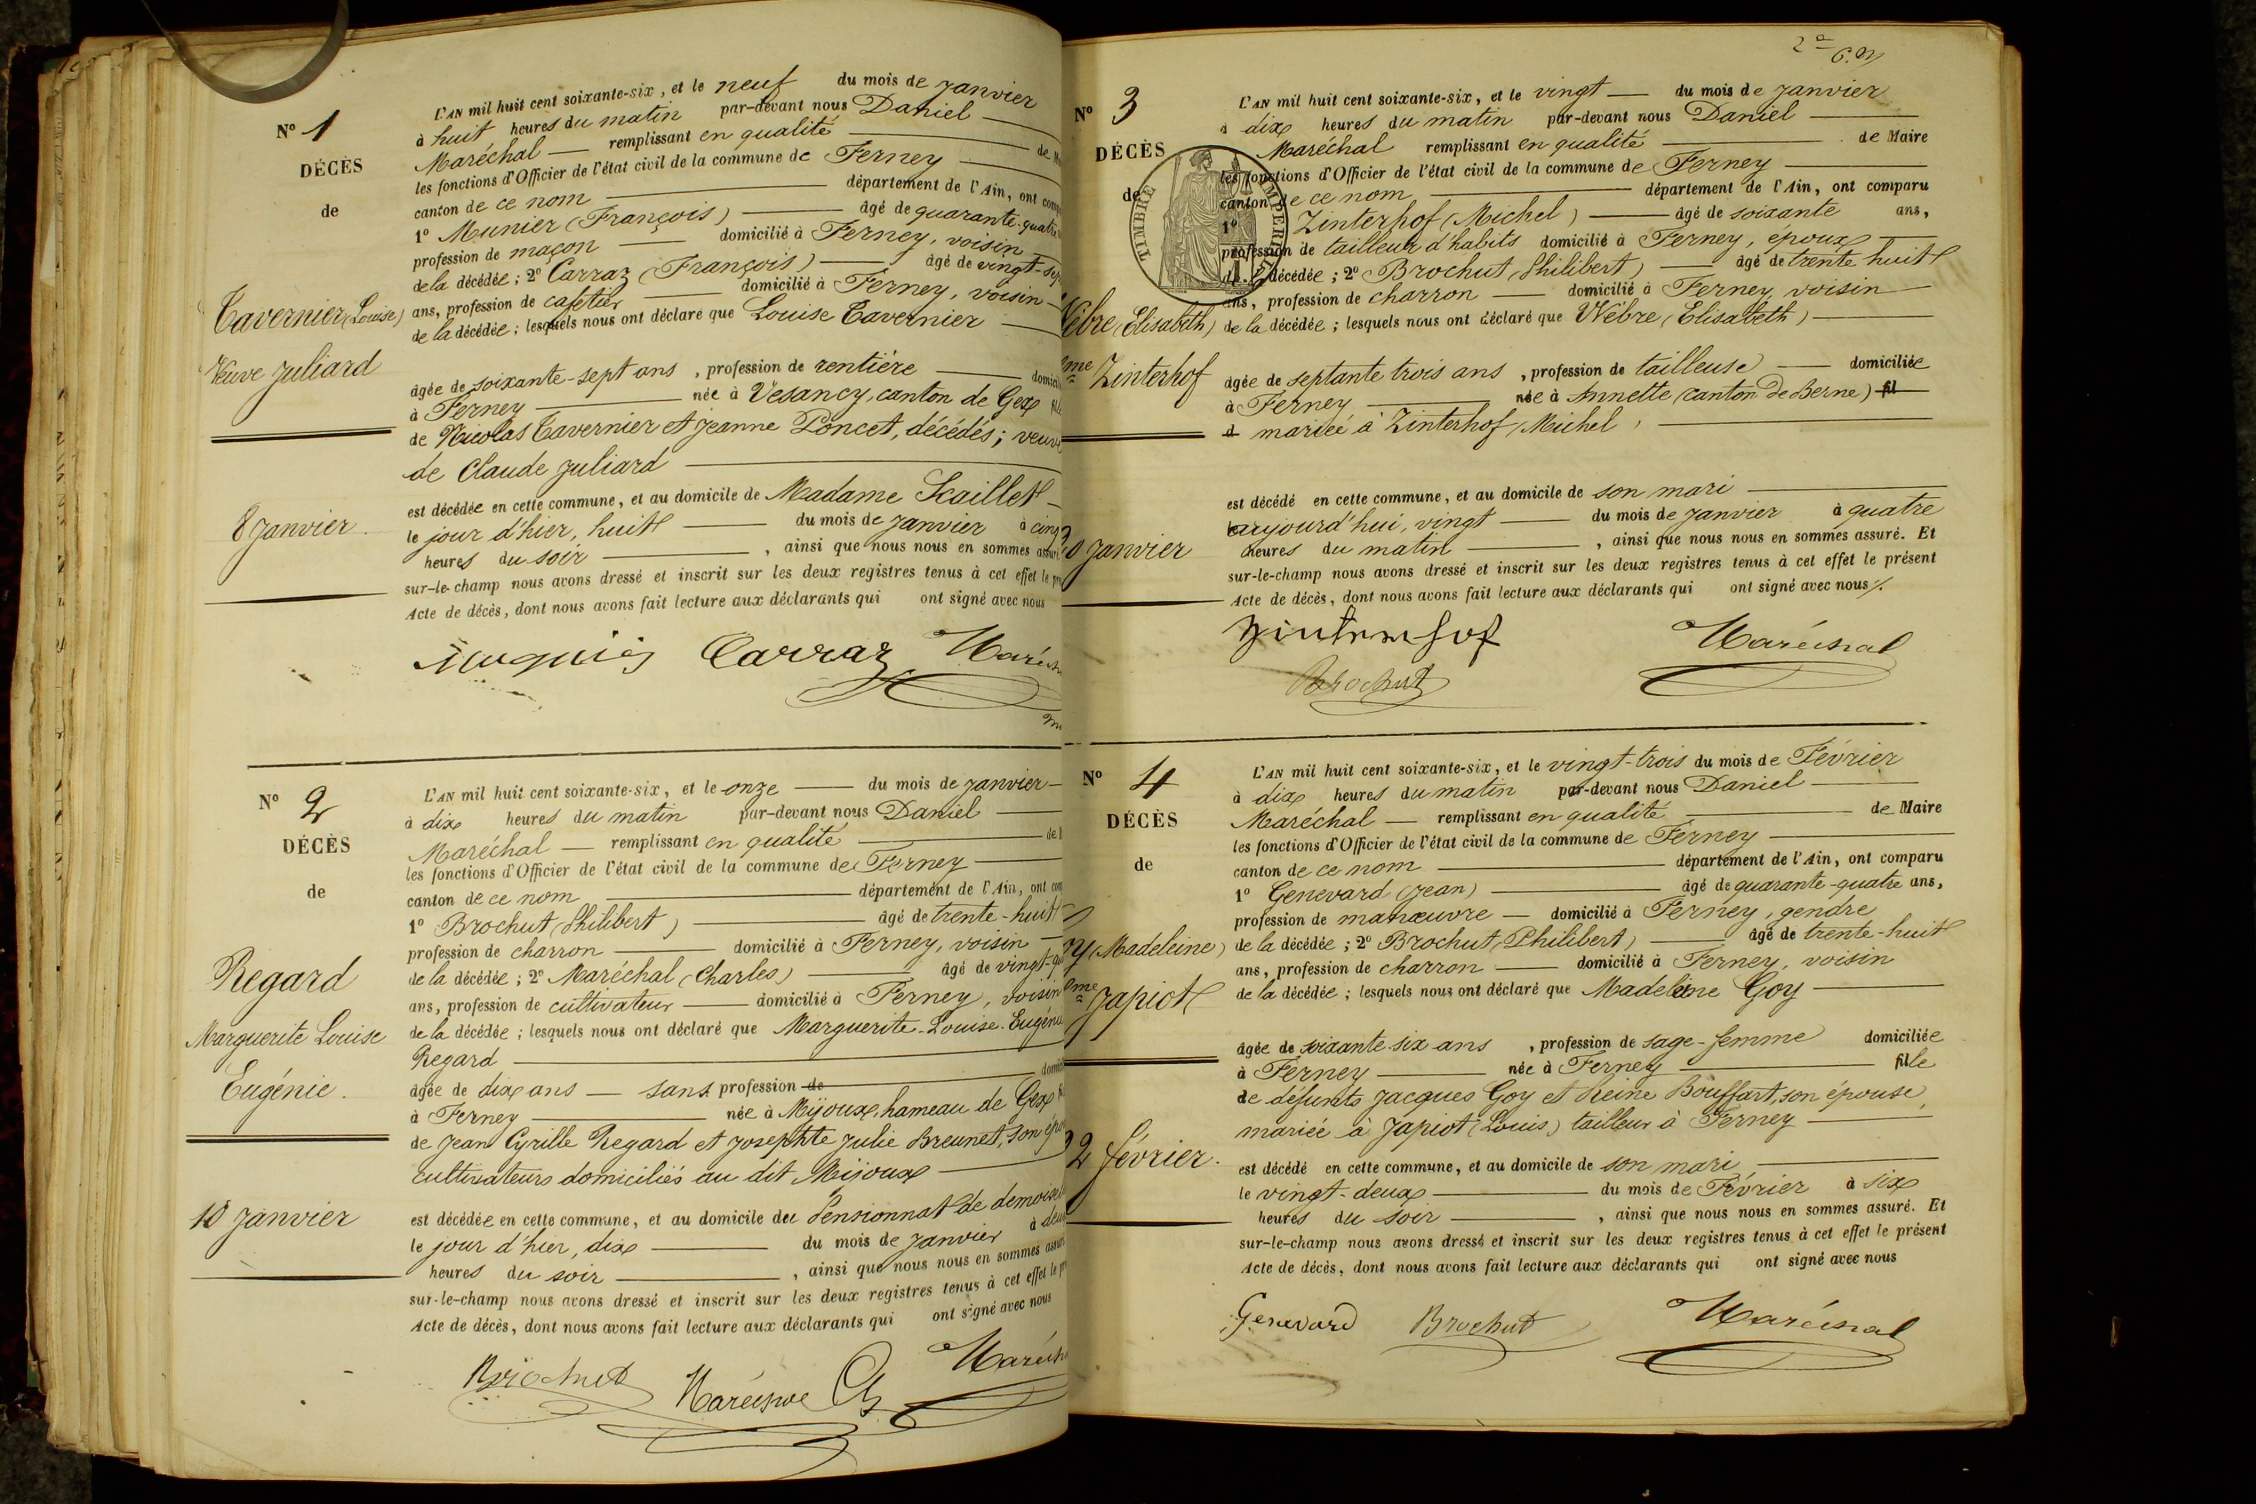 Nº 1
DÉCÈS
de
Tavernier (Louise)
Veuve Juliard
8 Janvier.
L'AN mil huit cent soixante-six, et le neuf du mois de Janvier
à huit heures du matin par-devant nous Daniel
Maréchal remplissant en qualité de
les fonctions d'Officier de l'état civil de la commune de Ferney
canton de ce nom département de l'Ain, ont
1º Munier (François) âgé de quarante-quatre
profession de maçon domicilié à Ferney, voisin
de la décédée; 2º Carraz (François) âgé de vingt-sep
ans, profession de cafetier domicilié à Ferney, voisin
de la décédée; lesquels nous ont déclaré que Louise Tavernier
âgée de soixante-sept ans, profession de rentière
à Ferney née à Vesancy, canton de Gex
de Nicolas Tavernier et Jeanne Poncet, décédés; veuve
de Claude Juliard
est décédée en cette commune, et au domicile de Madame Scaillet
le jour d'hier, huit du mois de Janvier à cinq
heures du soir, ainsi que nous nous en sommes
sur-le-champ nous avons dressé et inscrit sur les deux registres tenus à cet effet le
Acte de décès, dont nous avons fait lecture aux déclarants qui ont signé avec nous
Carraz Maréch
Nº 2
DÉCÈS
de
Regard
Marguerite Louise
Eugénie.
10 Janvier
L'AN mil huit cent soixante-six, et le onze du mois de Janvier
à dix heures du matin par-devant nous Daniel
Maréchal remplissant en qualité de
les fonctions d'Officier de l'état civil de la commune de Ferney
canton de ce nom département de l'Ain, ont
1º Brochut (Philibert) âgé de trente-huit
profession de charron domicilié à Ferney, voisin
de la décédée; 2º Maréchal (Charles) âgé de vingt-
ans, profession de cultivateur domicilié à Ferney, voisin
de la décédée; lesquels nous ont déclaré que Marguerite-Louise-Eugénie
Regard
âgée de dix ans sans profession de
à Ferney née à Mijoux, hameau de Gex
de Jean Cyrille Regard et Josephte Julie Breunet, son
cultivateurs domiciliés au dit Mijoux
est décédée en cette commune, et au domicile du Pensionnat de demoiselles
le jour d'hier, dix du mois de Janvier à deux
heures du soir, ainsi que nous nous en sommes
sur-le-champ nous avons dressé et inscrit sur les deux registres tenus à cet effet le
Acte de décès, dont nous avons fait lecture aux déclarants qui ont signé avec nous
Brochut Maréchal Ch Maréch
2e
Nº 3
DÉCÈS
de
TIMBRE IMPERIAL
Wèbre (Elisabeth)
me Zinterhof
20 Janvier
L'AN mil huit cent soixante-six, et le vingt du mois de Janvier
à dix heures du matin par-devant nous Daniel
Maréchal remplissant en qualité de Maire
les fonctions d'Officier de l'état civil de la commune de Ferney
canton de ce nom département de l'Ain, ont comparu
1º Zinterhof (Michel) âgé de soixante ans,
profession de tailleur d'habits domicilié à Ferney, époux
de la décédée; 2º Brochut (Philibert) âgé de trente huit
ans, profession de charron domicilié à Ferney, voisin
de la décédée; lesquels nous ont déclaré que Wèbre (Elisabeth)
âgée de septante trois ans, profession de tailleuse domiciliée
à Ferney née à Annette (canton de Berne) fil
d mariée à Zinterhof (Michel)
est décédé en cette commune, et au domicile de son mari
aujourd'hui, vingt du mois de Janvier à quatre
heures du matin, ainsi que nous nous en sommes assuré. Et
sur-le-champ nous avons dressé et inscrit sur les deux registres tenus à cet effet le présent
Acte de décès, dont nous avons fait lecture aux déclarants qui ont signé avec nous.
Zinterhof Maréchal
Brochut
Nº 4
DÉCÈS
de
y (Madeleine)
me Japiot
22 février.
L'AN mil huit cent soixante-six, et le vingt-trois du mois de Février
à dix heures du matin par-devant nous Daniel
Maréchal remplissant en qualité de Maire
les fonctions d'Officier de l'état civil de la commune de Ferney
canton de ce nom département de l'Ain, ont comparu
1º Genevard (Jean) âgé de quarante-quatre ans,
profession de manœuvre domicilié à Ferney, gendre
de la décédée; 2º Brochut (Philibert) âgé de trente-huit
ans, profession de charron domicilié à Ferney, voisin
de la décédée; lesquels nous ont déclaré que Madeleine Goy
âgée de soixante-six ans, profession de sage-femme domiciliée
à Ferney née à Ferney fille
de défunts Jacques Goy et Reine Bouffart, son épouse,
mariée à Japiot (Louis) tailleur à Ferney
est décédé en cette commune, et au domicile de son mari
le vingt-deux du mois de Février à six
heures du soir, ainsi que nous nous en sommes assuré. Et
sur-le-champ nous avons dressé et inscrit sur les deux registres tenus à cet effet le présent
Acte de décès, dont nous avons fait lecture aux déclarants qui ont signé avec nous
Genevard Brochut Maréchal